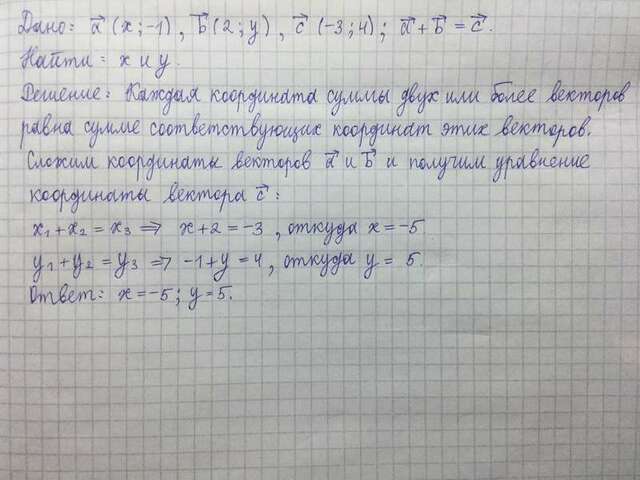 Дано: a⃗ (x; -1), b⃗ (2; y), c⃗ (-3; 4); a⃗ + b⃗ = c⃗.
Найти: x и y.
Решение: Каждая координата суммы двух или более векторов
равна сумме соответствующих координат этих векторов.
Сложим координаты векторов a⃗ и b⃗ и получим уравнение
координаты вектора c⃗:
x₁ + x₂ = x₃ ⇒ x + 2 = -3, откуда x = -5
y₁ + y₂ = y₃ ⇒ -1 + y = 4, откуда y = 5.
Ответ: x = -5; y = 5.